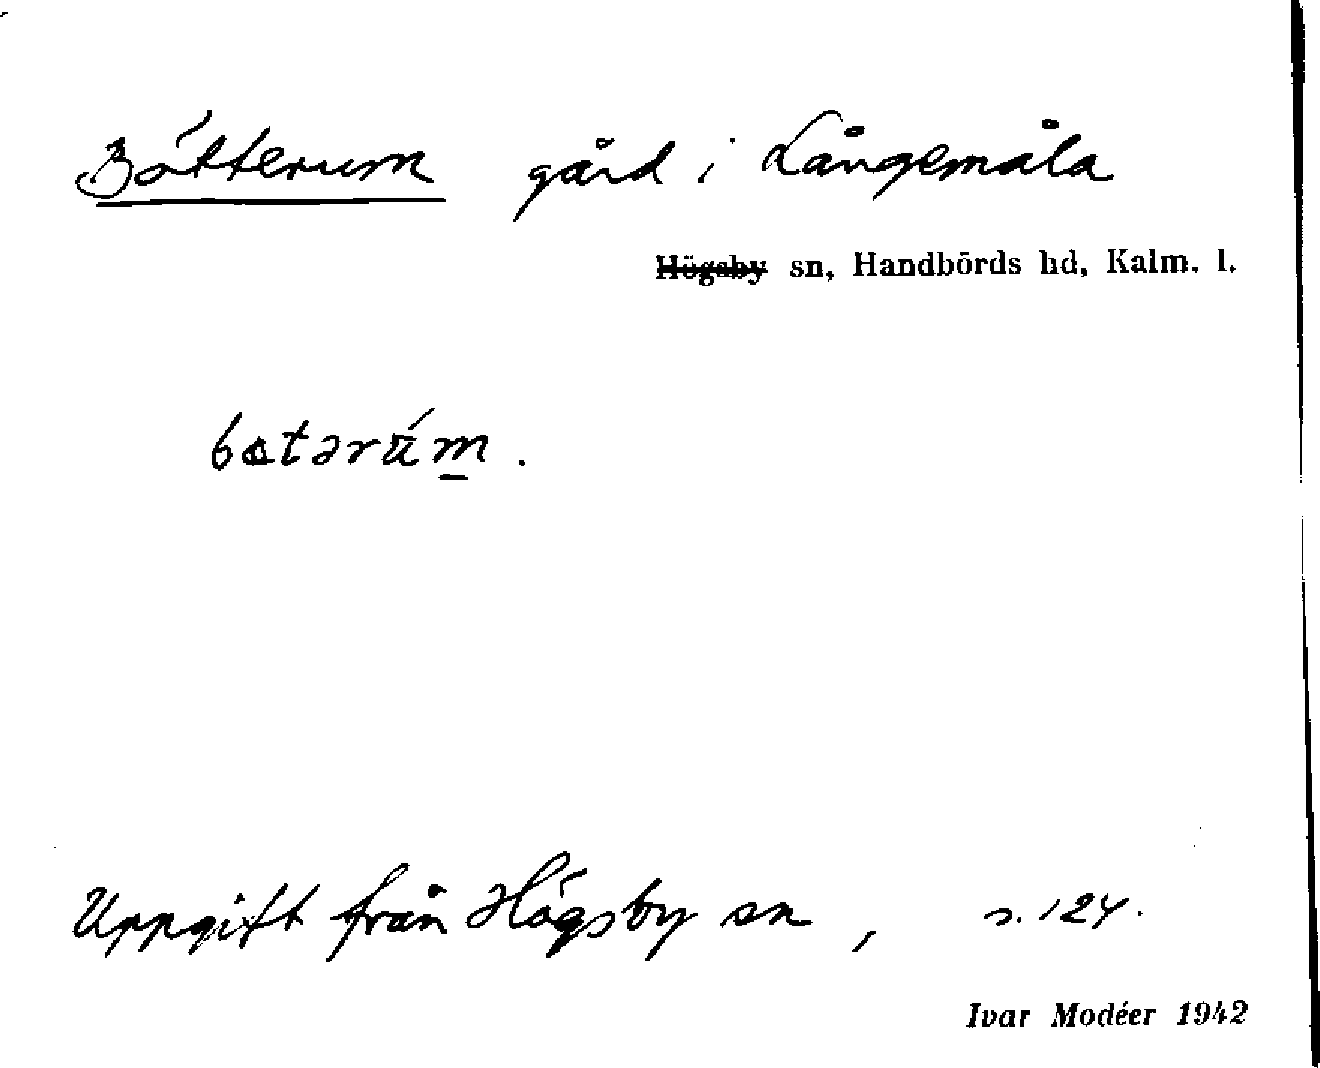 Bötterum gård i Långemåla
Högsby sn, Handbörds hd, Kalm. l.
Uppgift från Högsby sn, s. 124.
Ivar Modéer 1942